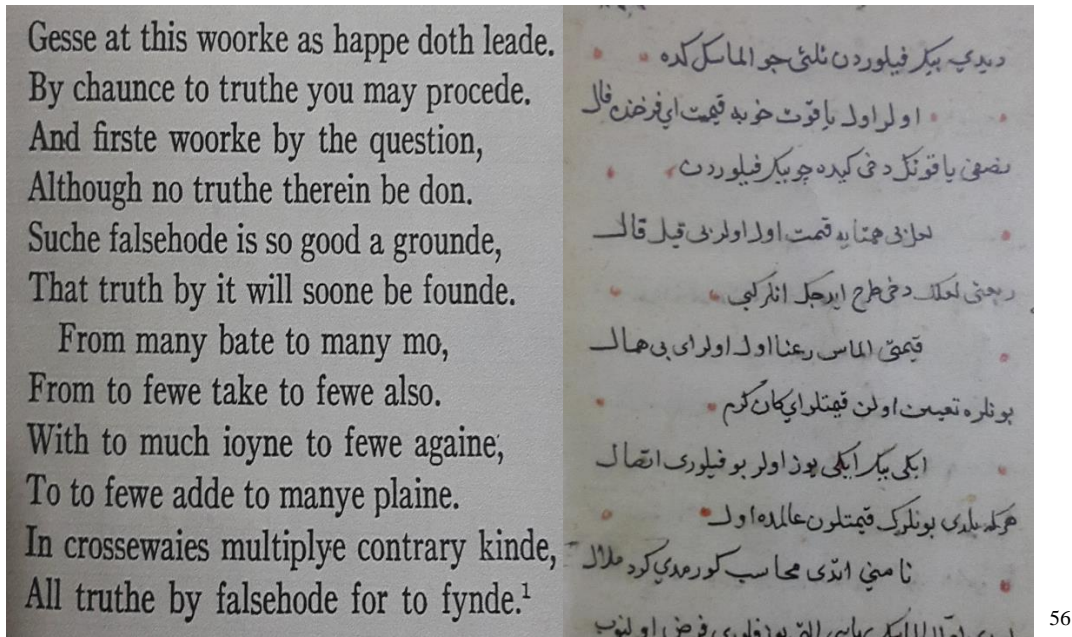 Gesse at this woorke as happe doth leade.
By chaunce to truthe you may procede.
And firste woorke by the question,
Although no truthe therein be don.
Suche falsehode is so good a grounde,
That truth by it will soone be founde.
From many bate to many mo,
From to fewe take to fewe also.
With to much ioyne to fewe againe,
To to fewe adde to manye plaine.
In crossewaies multiplye contrary kinde,
All truthe by falsehode for to fynde.¹
ديدي بيك فيلوردن ثلثي جو الماسك كده
اولر اول ياقوت خوبه قيمت اي فرخنده فال
نصفي ياقوتك دخي كيده جو بيك فيلوردن
لعل بي همتايه قيمت اول اولر بي قيل قال
ربعني لعلك دخي طرح ايدجك انلر كبي
قيمتي الماس رعنا اول اولر اي بي همال
بونلره تعيين اولن قيمتلر اي كان كرم
ايكي بيك ايكي يوز اولر بو فيلوري اتصال
هر كه بلدي بونلرك قيمتلرن عالمده اول
نامني اندي محاسب كورمدي كرد ملال
56